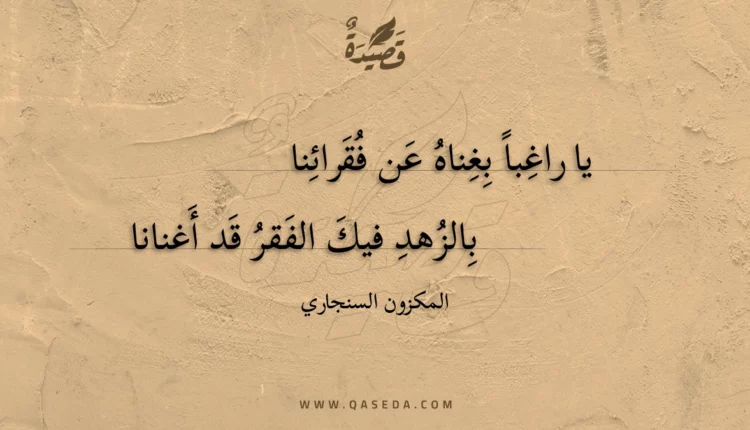 قَصِيدَةٌ
يا راغِباً بِغِناهُ عَن فُقَرائِنا
بِالزُهدِ فيكَ الفَقرُ قَد أَغنانا
المكزون السنجاري
WWW.QASEDA.COM